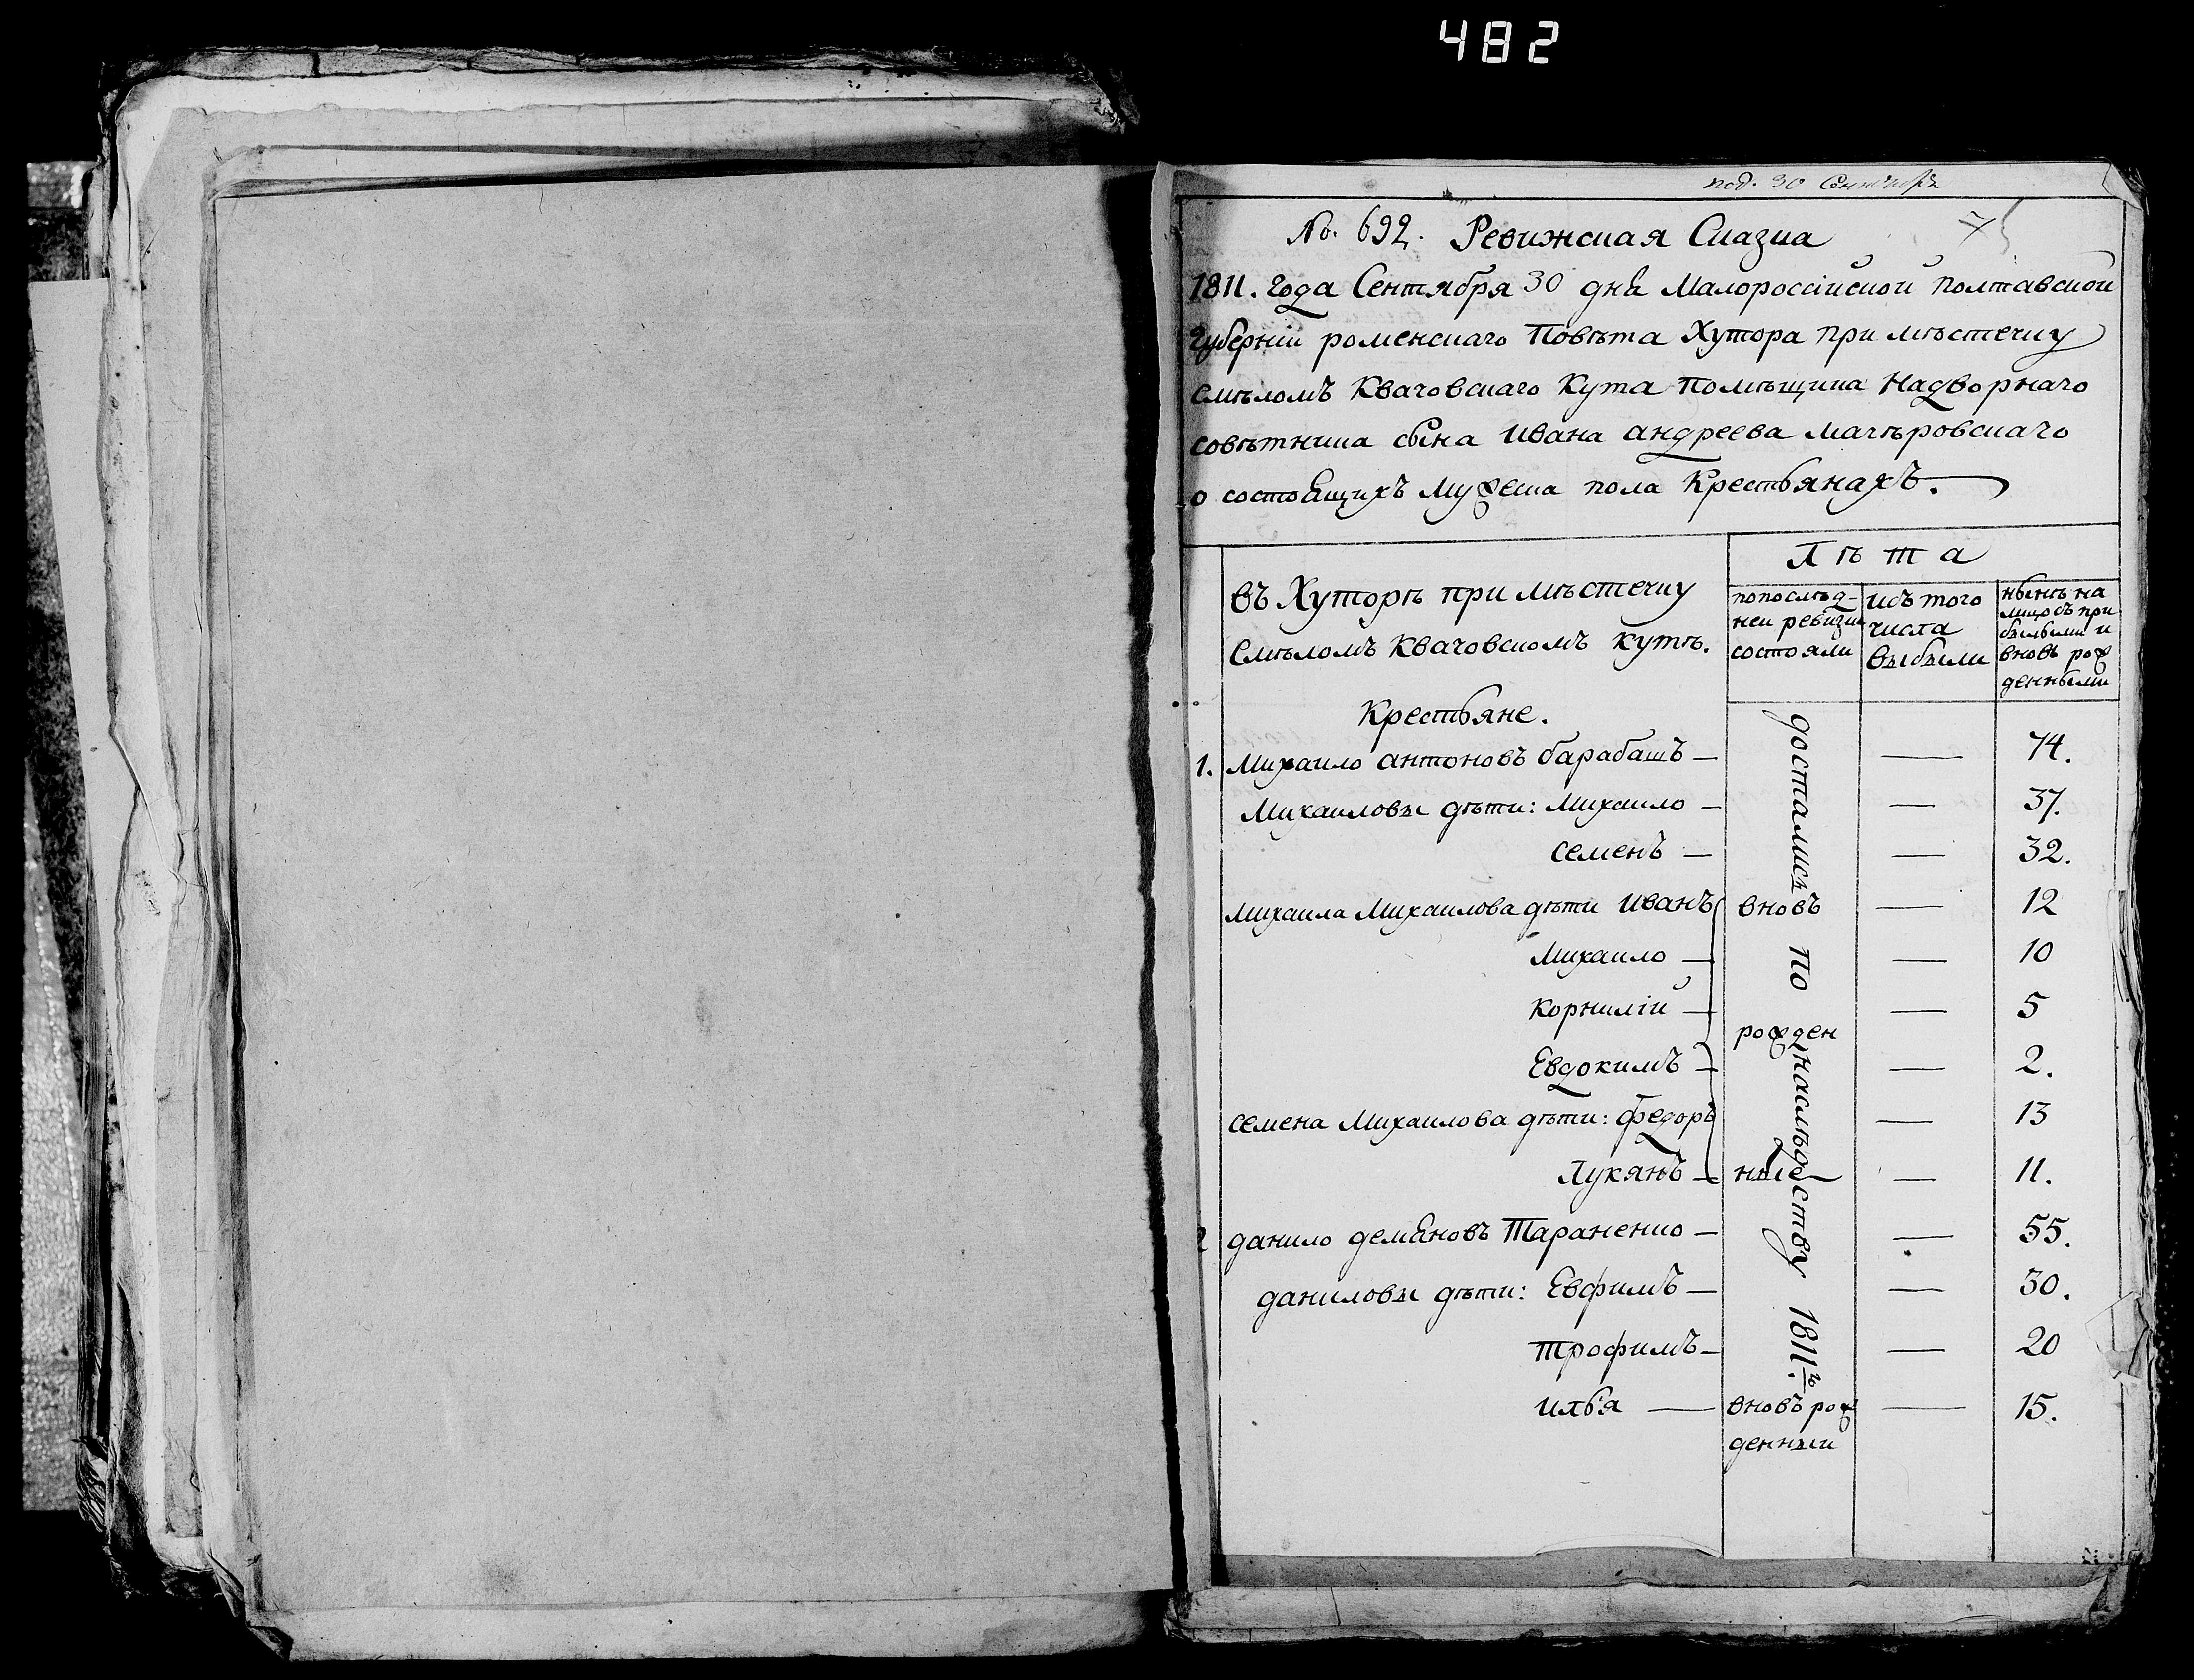 482
под. 30 Сентября
№. 692. Ревижская Сказка
1811. года Сентября 30 дня Малороссійской полтавской
губерніи роменскаго Повѣта Хутора при мѣстечку
смѣломъ Квачовскаго Кута Помѣщика Надворнаго
совѣтника сына Ивана андреева мачѣровскаго
о состоящихъ мужеска пола Крестьянахъ.
Лѣта
въ Хуторѣ при мѣстечку
Смѣломъ Квачовскомъ кутѣ.
попослѣд-
ней ревизіи
состояли
исъ того
числа
выбыли
нынѣ на
лицо съ при
былыми и
вновь рож
денными
Крестьяне.
1. Михаило антоновъ барабашъ — — 74.
Михаиловы дѣти: Михаило — — 37.
семенъ — — 32.
Михаила Михаилова дѣти Иванъ вновъ — 12
Михаило — — 10
Корнилій — — 5
рожден
Евдокимъ — — 2.
семена Михаилова дѣти: федоръ — 13
Лукянъ — ные — 11.
2 данило демяновъ Тараненко — — 55.
даниловы дѣти: Евфимъ — — 30.
трофимъ — — 20
илья — вновъ рож — 15.
денныи
досталисъ по наслѣдству 1811.го